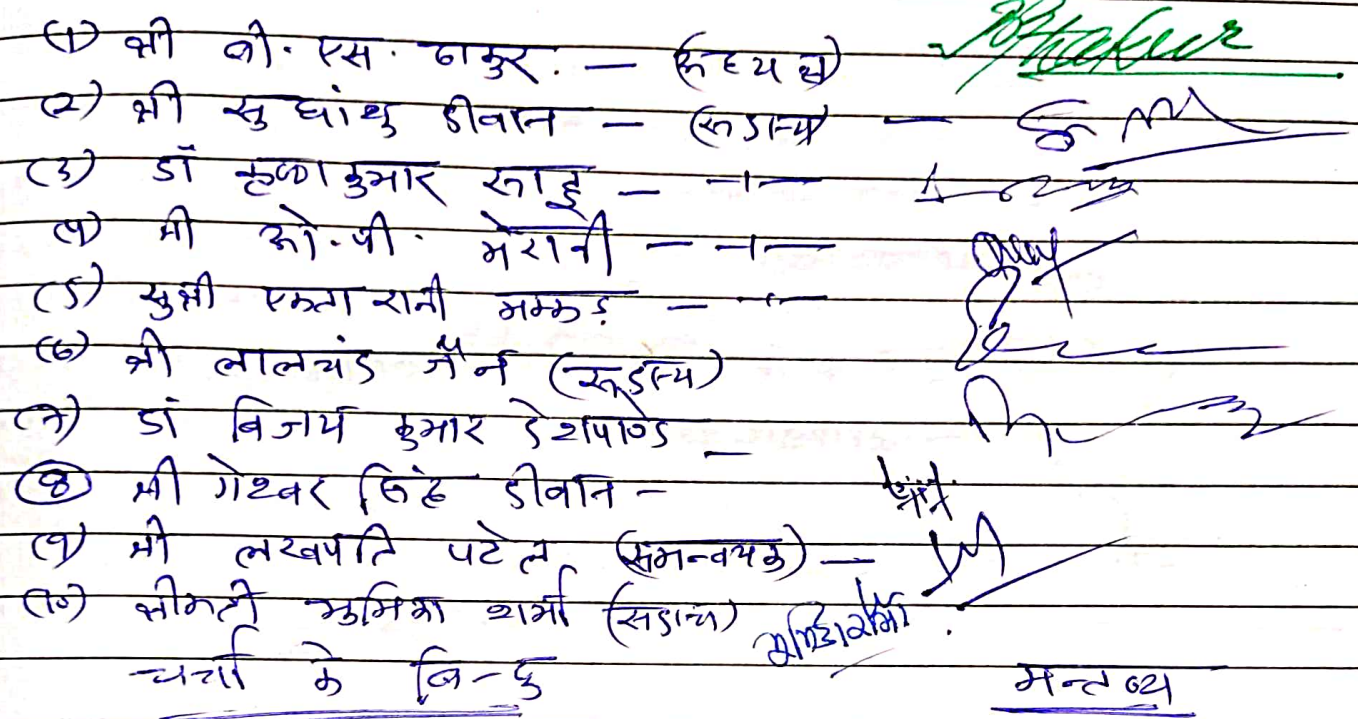 (१) श्री बी. एस. ठाकुर. — (अध्यक्ष) BSThakur
(२) श्री सुधांशु दीवान — (सदस्य) —
(३) डॉ कृष्ण कुमार साहू — -॥-
(४) श्री ओ. पी. मेरानी — -॥-
(५) सुश्री एकता रानी मक्कड़ — -॥-
(६) श्री लालचंद जैन (सदस्य)
(७) डॉ विजय कुमार देशपाण्डे —
(८) श्री गेश्वर सिंह दीवान -
(९) श्री लखपति पटेल (समन्वयक) —
(१०) श्रीमती भूमिका शर्मा (सदस्य) भूमिका शर्मा
चर्चा के बिन्दु मन्तव्य